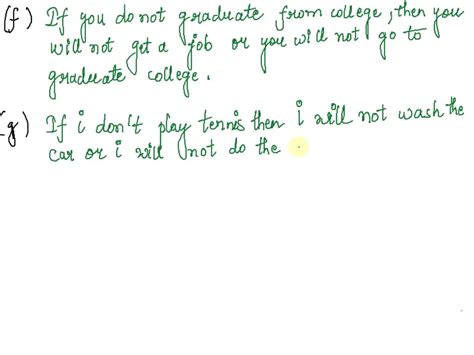 (f) If you do not graduate from college, then you
will not get a job or you will not go to
graduate college.
(g) If i don't play tennis then i will not wash the
car or i will not do the